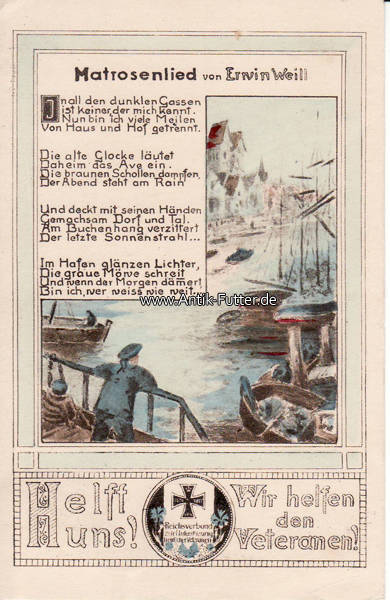 Matrosenlied von Erwin Weill
In all den dunklen Gassen
ist keiner, der mich kennt.
Nun bin ich viele Meilen
Von Haus und Hof getrennt.
Die alte Glocke läutet
Daheim das Ave ein.
Die braunen Schollen dampfen,
Der Abend steht am Rain
Und deckt mit seinen Händen
Gemachsam Dorf und Tal.
Am Buchenhang verzittert
Der letzte Sonnenstrahl...
Im Hafen glänzen Lichter,
Die graue Möwe schreit
Und wenn der Morgen dämert
Bin ich, wer weiss wie weit.
www.Antik-Futter.de
Helft uns!
Reichsverband
zur Unterstützung
deutscher Veteranen
Wir helfen
den
Veteranen!